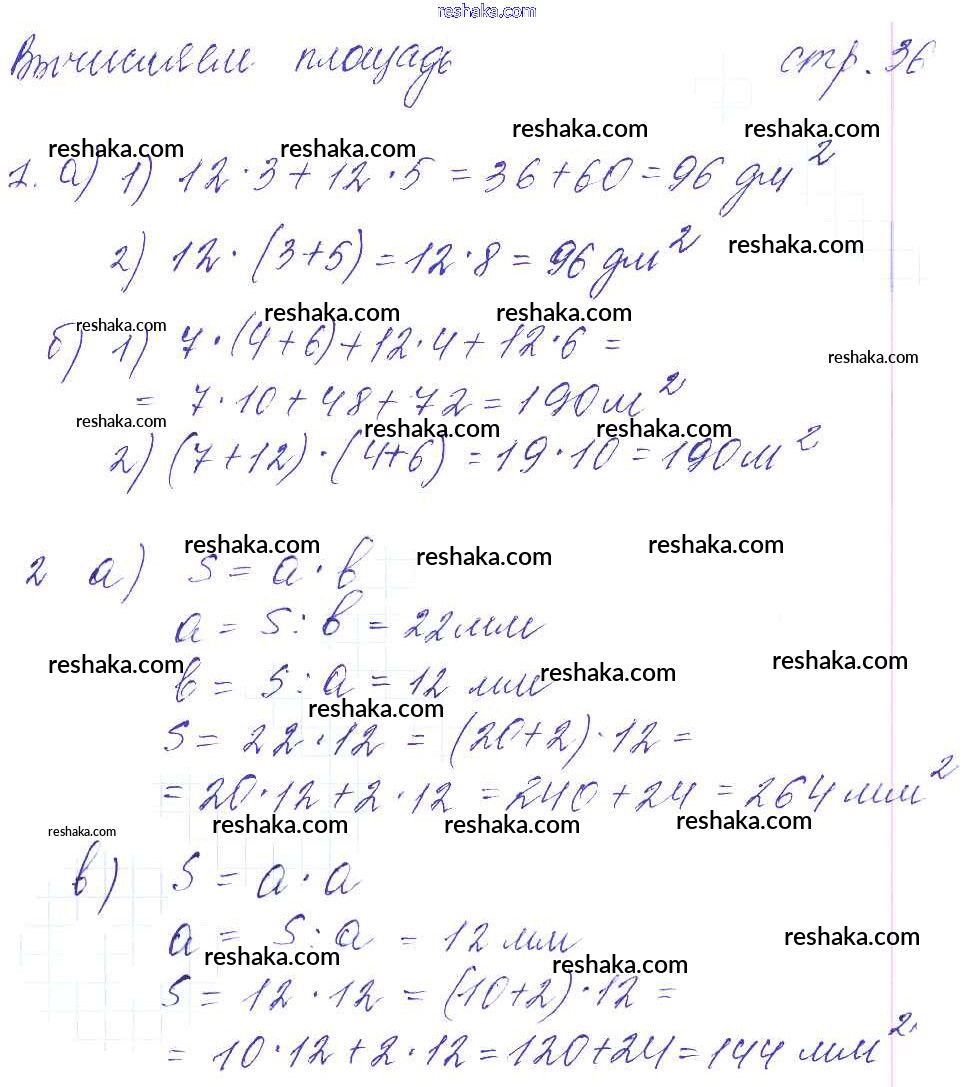 reshaka.com
Вычисляем площадь стр. 36
1. а) 1) 12·3+12·5 = 36+60 = 96 дм²
2) 12·(3+5) = 12·8 = 96 дм²
б) 1) 7·(4+6)+12·4+12·6 =
= 7·10+48+72 = 190 м²
2) (7+12)·(4+6) = 19·10 = 190 м²
2 а) S = a·b
a = S:b = 22 мм
b = S:a = 12 мм
S = 22·12 = (20+2)·12 =
= 20·12+2·12 = 240+24 = 264 мм²
в) S = a·a
a = S:a = 12 мм
S = 12·12 = (10+2)·12 =
= 10·12+2·12 = 120+24 = 144 мм²
reshaka.com reshaka.com
reshaka.com reshaka.com
reshaka.com
reshaka.com reshaka.com
reshaka.com reshaka.com
reshaka.com reshaka.com reshaka.com
reshaka.com reshaka.com reshaka.com
reshaka.com reshaka.com reshaka.com
reshaka.com
reshaka.com reshaka.com reshaka.com reshaka.com
reshaka.com reshaka.com reshaka.com